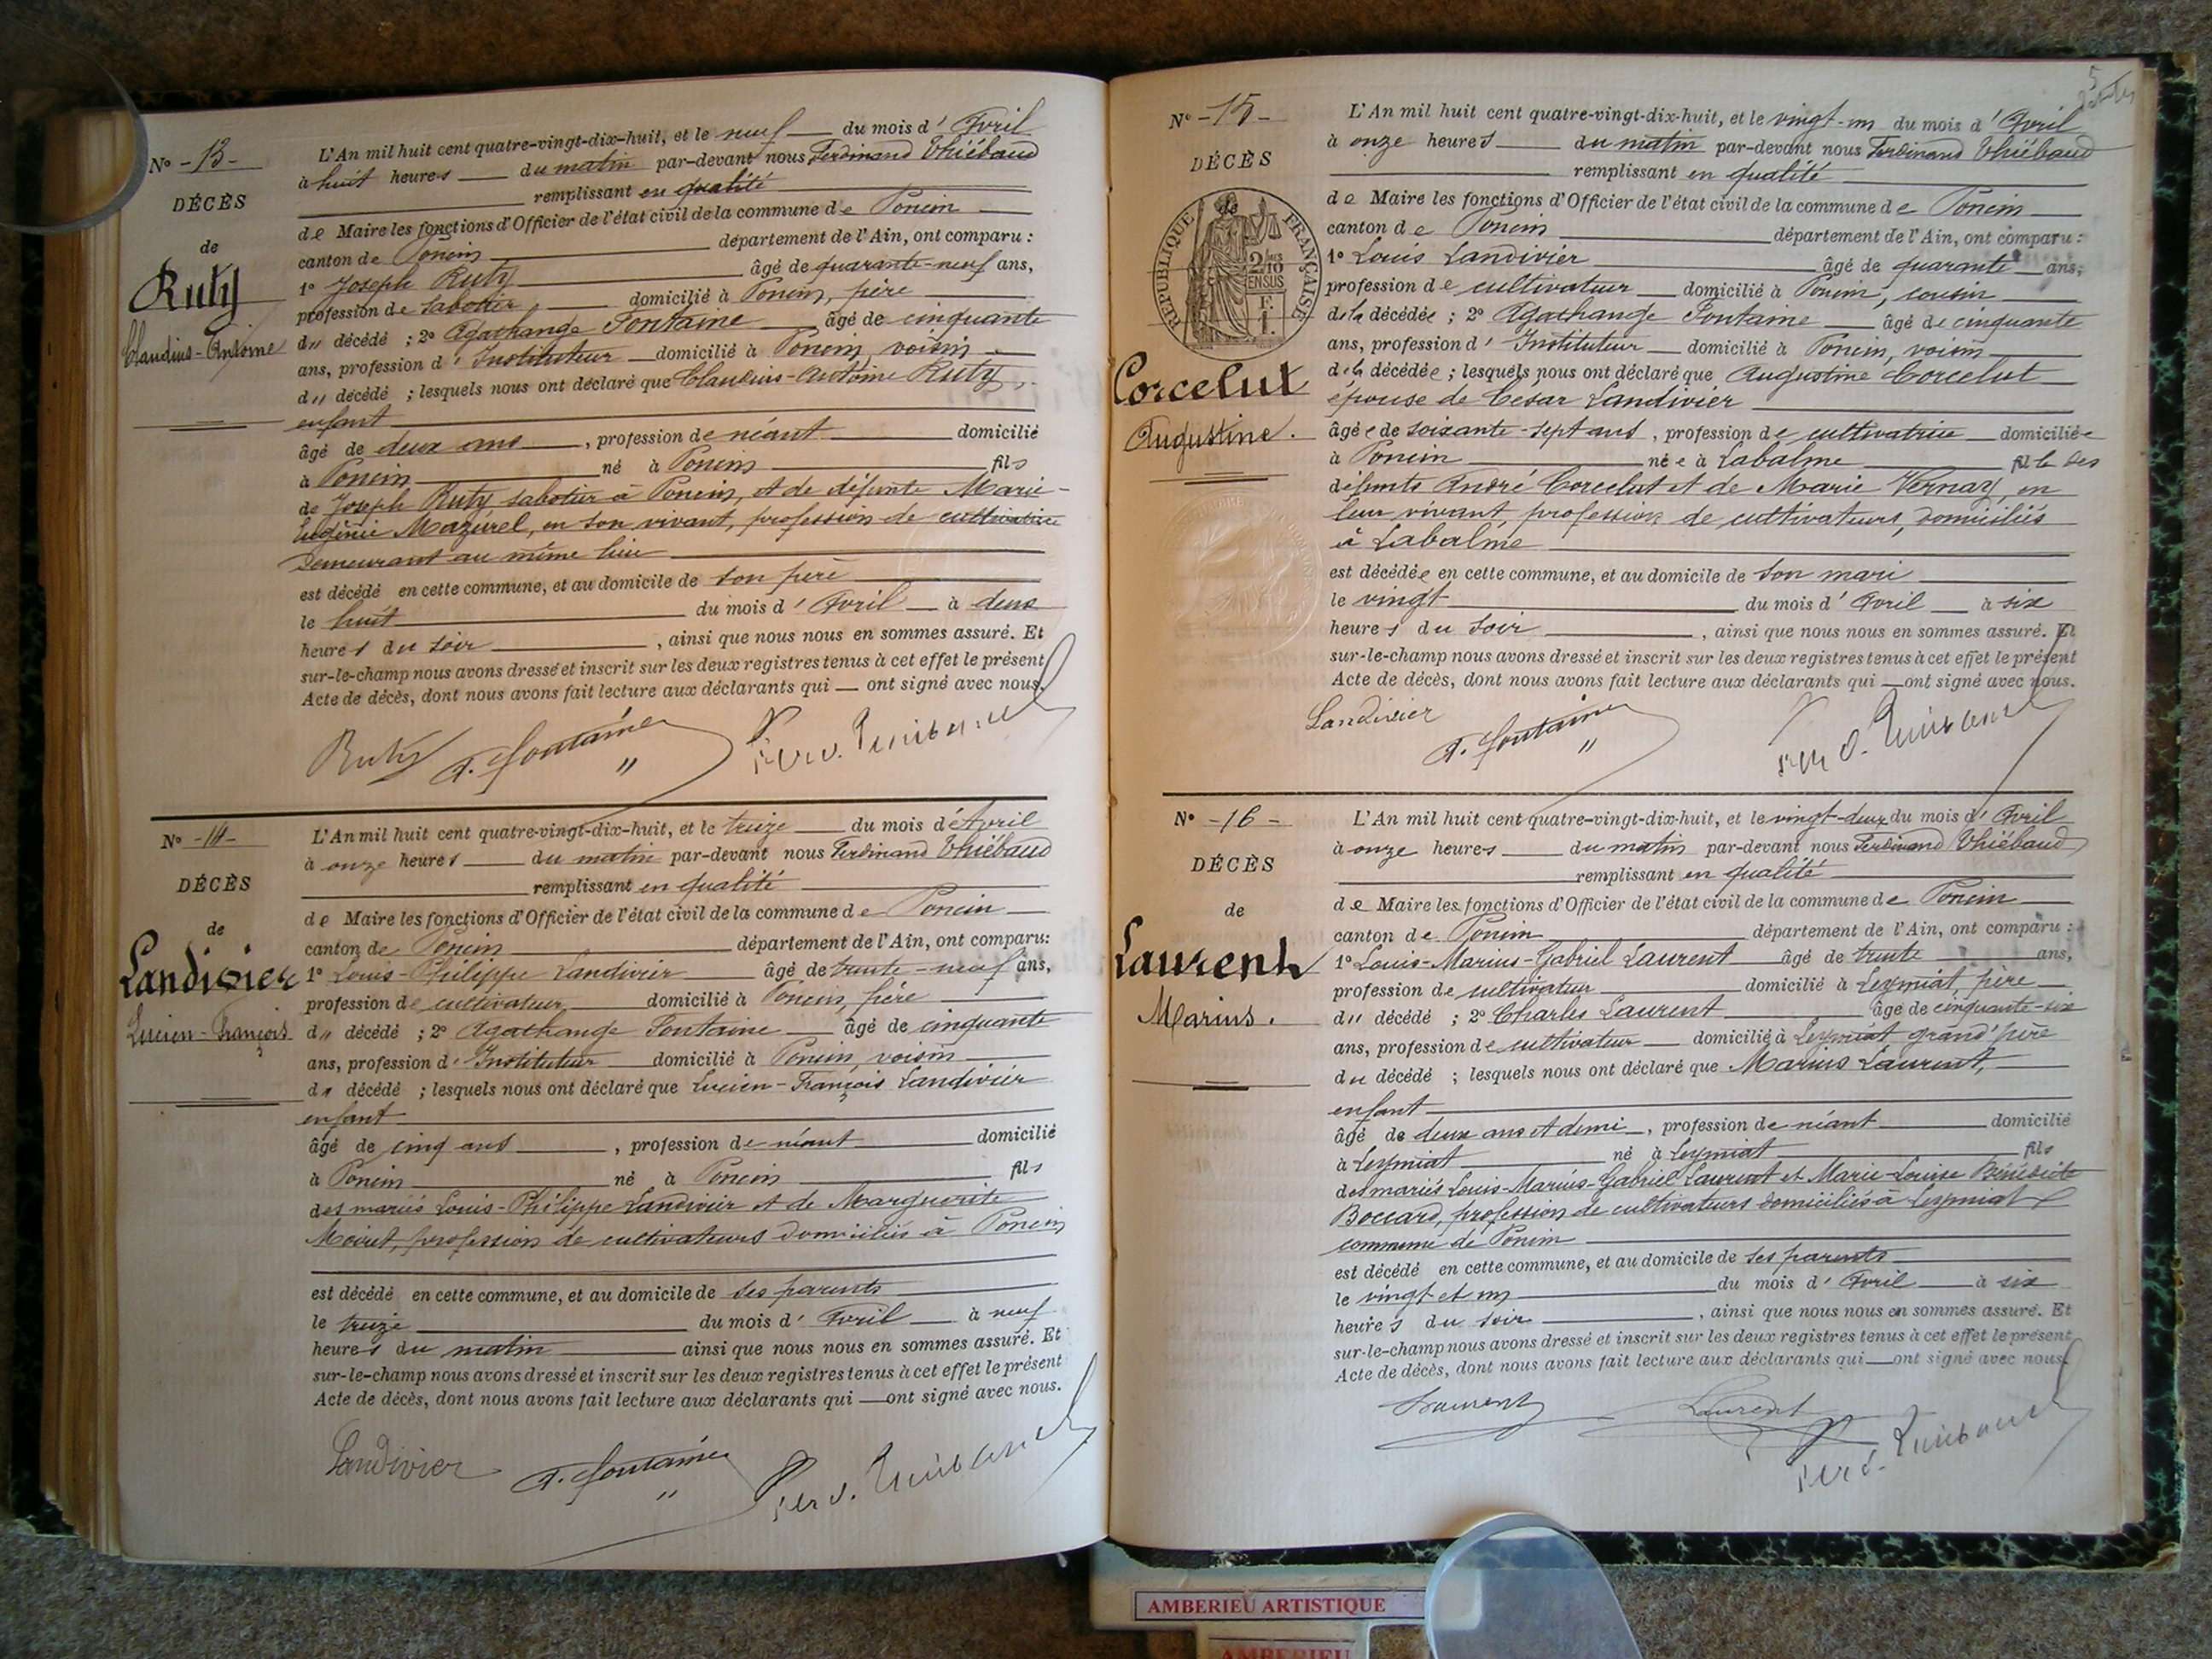 N° - 13 -
DÉCÈS
de
Ruty
Claudius-Antoine
L'An mil huit cent quatre-vingt-dix-huit, et le neuf du mois d' Avril
à huit heures du matin par-devant nous Ferdinand Thiébaud
remplissant en qualité
de Maire les fonctions d'Officier de l'état civil de la commune de Poncin
canton de Poncin département de l'Ain, ont comparu :
1° Joseph Ruty âgé de quarante-neuf ans,
profession de sabotier domicilié à Poncin, père
du décédé ; 2° Agathange Fontaine âgé de cinquante
ans, profession d' Instituteur domicilié à Poncin, voisin
du décédé ; lesquels nous ont déclaré que Claudius-Antoine Ruty,
enfant
âgé de deux ans , profession de néant domicilié
à Poncin né à Poncin fils
de Joseph Ruty, sabotier à Poncin, et de défunte Marie-
Eugénie Mazurel, en son vivant, profession de cultivatrice
demeurant au même lieu
est décédé en cette commune, et au domicile de son père
le huit du mois d' Avril à deux
heures du soir , ainsi que nous nous en sommes assuré. Et
sur-le-champ nous avons dressé et inscrit sur les deux registres tenus à cet effet le présent
Acte de décès, dont nous avons fait lecture aux déclarants qui — ont signé avec nous.
Ruty A. Fontaine Ferd. Thiébaud
N° - 14 -
DÉCÈS
de
Landivier
Lucien-François
L'An mil huit cent quatre-vingt-dix-huit, et le treize du mois d' Avril
à onze heures du matin par-devant nous Ferdinand Thiébaud
remplissant en qualité
de Maire les fonctions d'Officier de l'état civil de la commune de Poncin
canton de Poncin département de l'Ain, ont comparu:
1° Louis-Philippe Landivier âgé de trente-neuf ans,
profession de cultivateur domicilié à Poncin, père
du décédé ; 2° Agathange Fontaine âgé de cinquante
ans, profession d' Instituteur domicilié à Poncin, voisin
du décédé ; lesquels nous ont déclaré que Lucien-François Landivier
enfant
âgé de cinq ans , profession de néant domicilié
à Poncin né à Poncin fils
des mariés Louis-Philippe Landivier et de Marguerite
Moiret, profession de cultivateurs domiciliés à Poncin
est décédé en cette commune, et au domicile de ses parents
le treize du mois d' Avril à neuf
heures du matin ainsi que nous nous en sommes assuré. Et
sur-le-champ nous avons dressé et inscrit sur les deux registres tenus à cet effet le présent
Acte de décès, dont nous avons fait lecture aux déclarants qui — ont signé avec nous.
Landivier A. Fontaine Ferd. Thiébaud
5
N° - 15 -
DÉCÈS
RÉPUBLIQUE FRANÇAISE
2/10 EN SUS
Corcelut
Augustine.
L'An mil huit cent quatre-vingt-dix-huit, et le vingt-un du mois d' Avril
à onze heures du matin par-devant nous Ferdinand Thiébaud
remplissant en qualité
de Maire les fonctions d'Officier de l'état civil de la commune de Poncin
canton de Poncin département de l'Ain, ont comparu :
1° Louis Landivier âgé de quarante ans,
profession de cultivateur domicilié à Poncin, cousin
de la décédée ; 2° Agathange Fontaine âgé de cinquante
ans, profession d' Instituteur domicilié à Poncin, voisin
de la décédée ; lesquels nous ont déclaré que Augustine Corcelut
épouse de César Landivier
âgée de soixante-sept ans , profession de cultivatrice domiciliée
à Poncin née à Labalme fille des
défunts André Corcelut et de Marie Vernay, en
leur vivant profession de cultivateurs, domiciliés
à Labalme
est décédée en cette commune, et au domicile de son mari
le vingt du mois d' Avril à six
heures du soir , ainsi que nous nous en sommes assuré. Et
sur-le-champ nous avons dressé et inscrit sur les deux registres tenus à cet effet le présent
Acte de décès, dont nous avons fait lecture aux déclarants qui — ont signé avec nous.
Landivier A. Fontaine Ferd. Thiébaud
N° - 16 -
DÉCÈS
de
Laurent
Marius.
L'An mil huit cent quatre-vingt-dix-huit, et le vingt-deux du mois d' Avril
à onze heures du matin par-devant nous Ferdinand Thiébaud
remplissant en qualité
de Maire les fonctions d'Officier de l'état civil de la commune de Poncin
canton de Poncin département de l'Ain, ont comparu :
1° Louis-Marius-Gabriel Laurent âgé de trente ans,
profession de cultivateur domicilié à Leymiat, père
du décédé ; 2° Charles Laurent âgé de cinquante-six
ans, profession de cultivateur domicilié à Leymiat grand'père
du décédé ; lesquels nous ont déclaré que Marius Laurent,
enfant
âgé de deux ans et demi , profession de néant domicilié
à Leymiat né à Leymiat fils
des mariés Louis-Marius-Gabriel Laurent et Marie-Louise Bénédicte
Boccard, profession de cultivateurs domiciliés à Leymiat
commune de Poncin
est décédé en cette commune, et au domicile de ses parents
le vingt et un du mois d' Avril à six
heures du soir , ainsi que nous nous en sommes assuré. Et
sur-le-champ nous avons dressé et inscrit sur les deux registres tenus à cet effet le présent
Acte de décès, dont nous avons fait lecture aux déclarants qui — ont signé avec nous.
Laurent Laurent Ferd. Thiébaud
AMBERIEU ARTISTIQUE
AMBERIEU